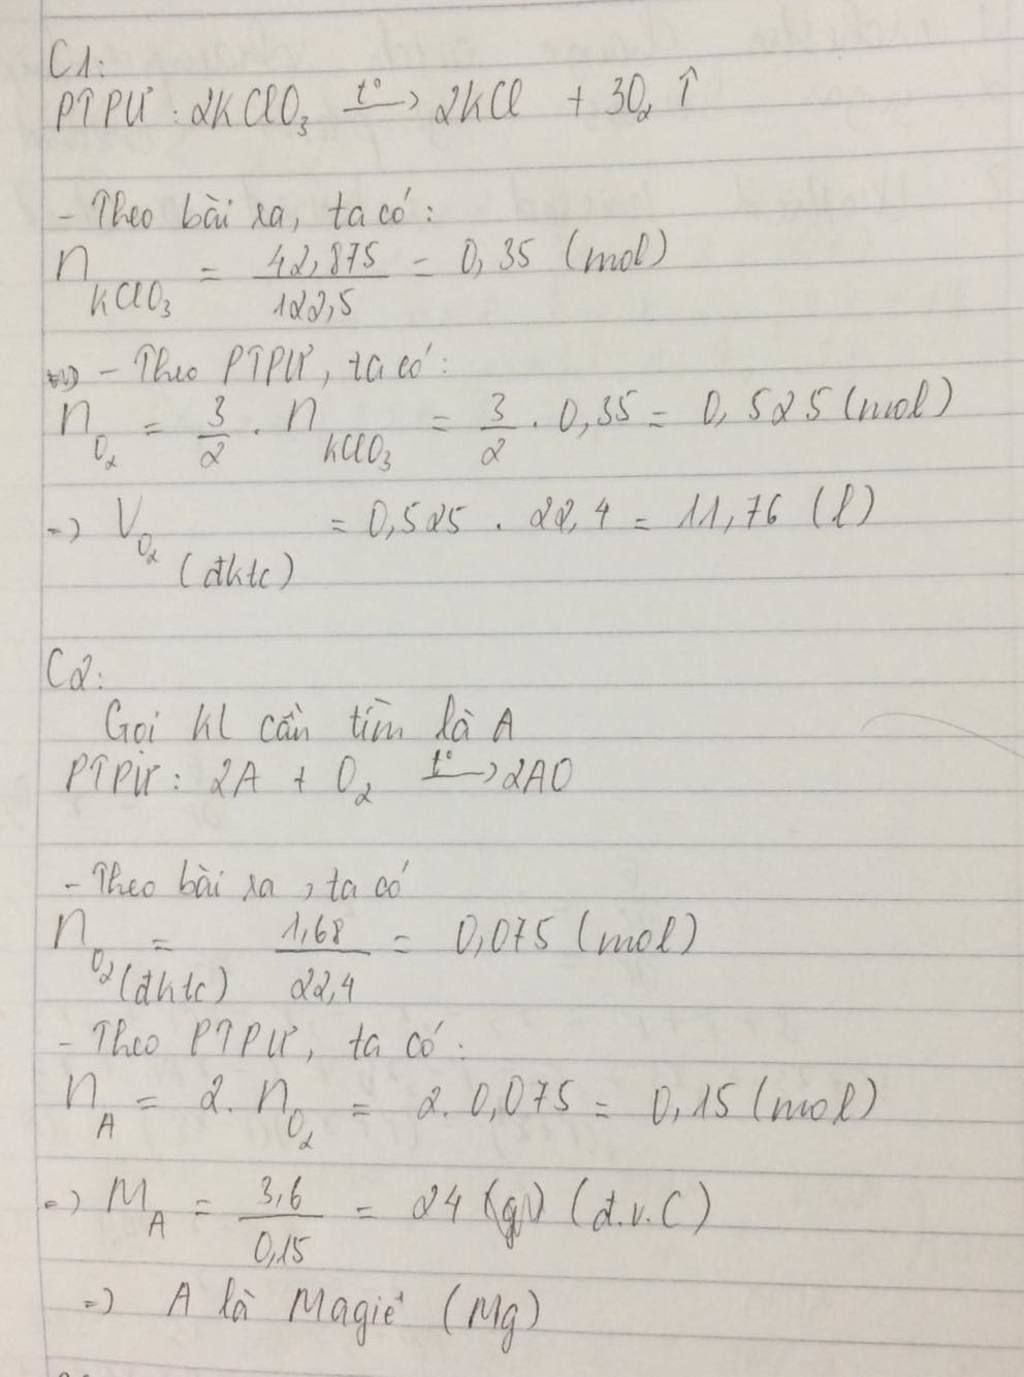 C1:
PTPƯ: 2KClO₃ t°→ 2KCl + 3O₂ ↑
- Theo bài ra, ta có:
n KClO₃ = 42,875 / 122,5 = 0,35 (mol)
- Theo PTPƯ, ta có:
n O₂ = 3/2 . n KClO₃ = 3/2 . 0,35 = 0,525 (mol)
=) V O₂ (đktc) = 0,525 . 22,4 = 11,76 (l)
C2:
Gọi KL cần tìm là A
PTPƯ: 2A + O₂ t°→ 2AO
- Theo bài ra, ta có
n O₂ (đktc) = 1,68 / 22,4 = 0,075 (mol)
- Theo PTPƯ, ta có:
n A = 2. n O₂ = 2. 0,075 = 0,15 (mol)
=) M A = 3,6 / 0,15 = 24 (đ.v.C)
=) A là Magiê (Mg)